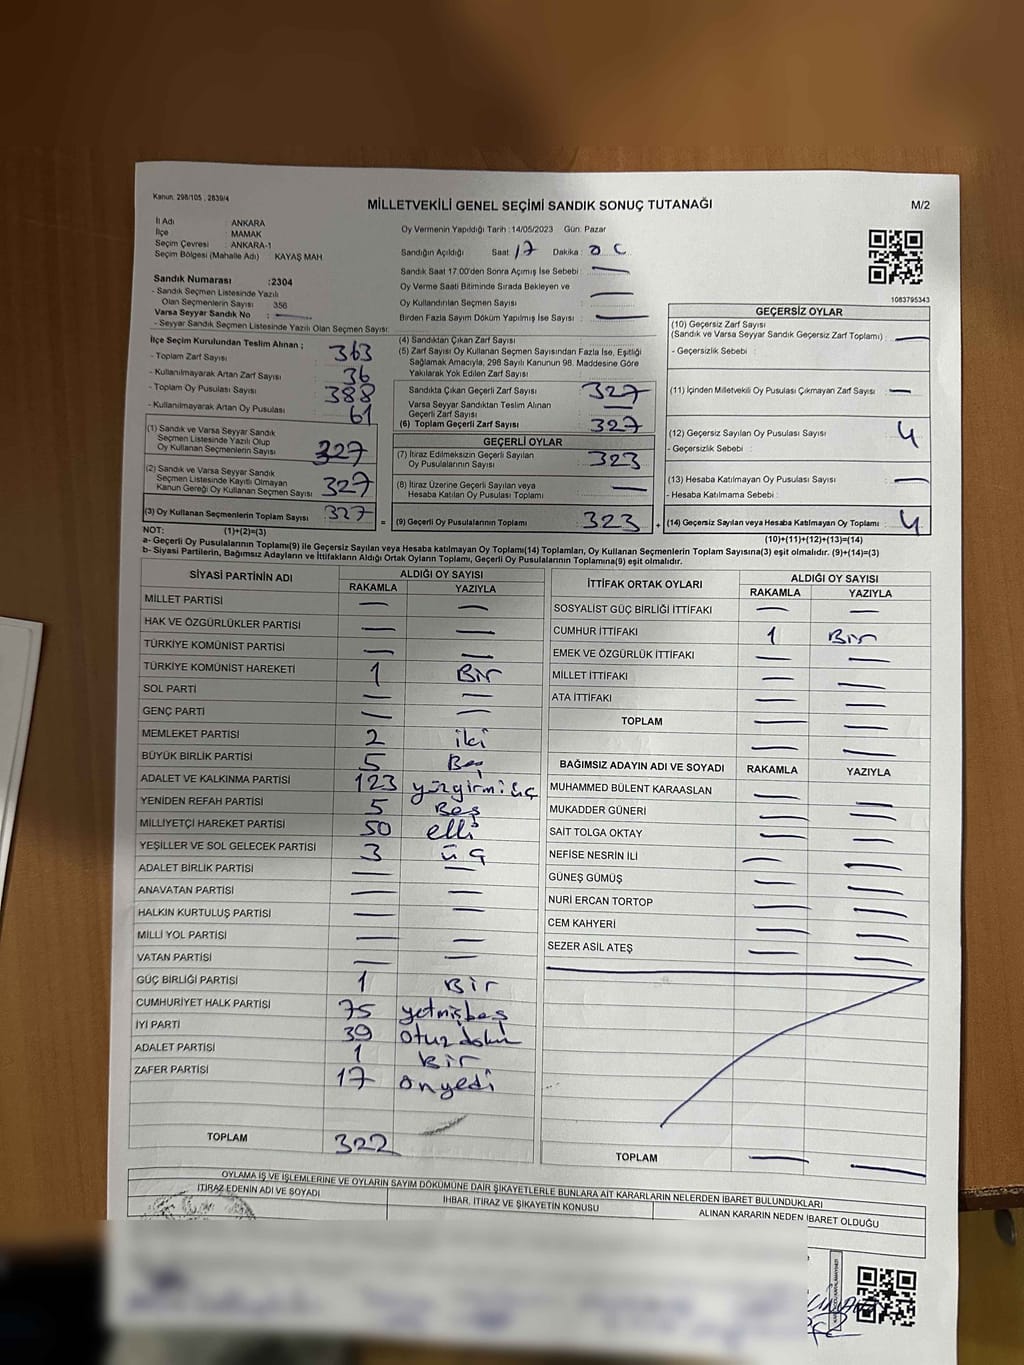 Kanun. 298/105 , 2839/4
MİLLETVEKİLİ GENEL SEÇİMİ SANDIK SONUÇ TUTANAĞI
M/2
İl Adı : ANKARA
İlçe : MAMAK
Seçim Çevresi : ANKARA-1
Seçim Bölgesi (Mahalle Adı) : KAYAŞ MAH
Sandık Numarası :2304
- Sandık Seçmen Listesinde Yazılı
Olan Seçmenlerin Sayısı : 356
Varsa Seyyar Sandık No : —
- Seyyar Sandık Seçmen Listesinde Yazılı Olan Seçmen Sayısı:
Oy Vermenin Yapıldığı Tarih : 14/05/2023 Gün: Pazar
Sandığın Açıldığı Saat : 17 Dakika :
Sandık Saat 17:00'den Sonra Açımış İse Sebebi : —
Oy Verme Saati Bitiminde Sırada Bekleyen ve
Oy Kullandırılan Seçmen Sayısı : —
Birden Fazla Sayım Döküm Yapılmış İse Sayısı : —
1083795343
İlçe Seçim Kurulundan Teslim Alınan ;
- Toplam Zarf Sayısı : 363
- Kullanılmayarak Artan Zarf Sayısı : 36
- Toplam Oy Pusulası Sayısı : 388
- Kullanılmayarak Artan Oy Pusulası : 61
(1) Sandık ve Varsa Seyyar Sandık
Seçmen Listesinde Yazılı Olup
Oy Kullanan Seçmenlerin Sayısı : 327
(2) Sandık ve Varsa Seyyar Sandık
Seçmen Listesinde Kayıtlı Olmayan
Kanun Gereği Oy Kullanan Seçmen Sayısı : 327
(3) Oy Kullanan Seçmenlerin Toplam Sayısı : 327
(4) Sandıktan Çıkan Zarf Sayısı :
(5) Zarf Sayısı Oy Kullanan Seçmen Sayısından Fazla İse, Eşitliği
Sağlamak Amacıyla, 298 Sayılı Kanunun 98. Maddesine Göre
Yakılarak Yok Edilen Zarf Sayısı :
Sandıkta Çıkan Geçerli Zarf Sayısı : 327
Varsa Seyyar Sandıktan Teslim Alınan
Geçerli Zarf Sayısı : —
(6) Toplam Geçerli Zarf Sayısı : 327
GEÇERLİ OYLAR
(7) İtiraz Edilmeksizin Geçerli Sayılan
Oy Pusulalarının Sayısı : 323
(8) İtiraz Üzerine Geçerli Sayılan veya
Hesaba Katılan Oy Pusulası Toplamı : —
= (9) Geçerli Oy Pusulalarının Toplamı : 323 +
GEÇERSİZ OYLAR
(10) Geçersiz Zarf Sayısı
(Sandık ve Varsa Seyyar Sandık Geçersiz Zarf Toplamı) : —
- Geçersizlik Sebebi :
(11) İçinden Milletvekili Oy Pusulası Çıkmayan Zarf Sayısı : —
(12) Geçersiz Sayılan Oy Pusulası Sayısı : 4
- Geçersizlik Sebebi :
(13) Hesaba Katılmayan Oy Pusulası Sayısı : —
- Hesaba Katılmama Sebebi :
(14) Geçersiz Sayılan veya Hesaba Katılmayan Oy Toplamı : 4
NOT: (1)+(2)=(3)
(10)+(11)+(12)+(13)=(14)
a- Geçerli Oy Pusulalarının Toplamı(9) ile Geçersiz Sayılan veya Hesaba katılmayan Oy Toplamı(14) Toplamları, Oy Kullanan Seçmenlerin Toplam Sayısına(3) eşit olmalıdır. (9)+(14)=(3)
b- Siyasi Partilerin, Bağımsız Adayların ve İttifakların Aldığı Ortak Oyların Toplamı, Geçerli Oy Pusulalarının Toplamına(9) eşit olmalıdır.
SİYASİ PARTİNİN ADI ALDIĞI OY SAYISI
RAKAMLA YAZIYLA
MİLLET PARTİSİ — —
HAK VE ÖZGÜRLÜKLER PARTİSİ — —
TÜRKİYE KOMÜNİST PARTİSİ — —
TÜRKİYE KOMÜNİST HAREKETİ 1 Bir
SOL PARTİ — —
GENÇ PARTİ — —
MEMLEKET PARTİSİ 2 iki
BÜYÜK BİRLİK PARTİSİ 5 Beş
ADALET VE KALKINMA PARTİSİ 123 yüzyirmi üç
YENİDEN REFAH PARTİSİ 5 Beş
MİLLİYETÇİ HAREKET PARTİSİ 50 elli
YEŞİLLER VE SOL GELECEK PARTİSİ 3 üç
ADALET BİRLİK PARTİSİ — —
ANAVATAN PARTİSİ — —
HALKIN KURTULUŞ PARTİSİ — —
MİLLİ YOL PARTİSİ — —
VATAN PARTİSİ — —
GÜÇ BİRLİĞİ PARTİSİ 1 Bir
CUMHURİYET HALK PARTİSİ 75 yetmişbeş
İYİ PARTİ 39 otuz doku
ADALET PARTİSİ 1 bir
ZAFER PARTİSİ 17 onyedi
TOPLAM 322
İTTİFAK ORTAK OYLARI ALDIĞI OY SAYISI
RAKAMLA YAZIYLA
SOSYALİST GÜÇ BİRLİĞİ İTTİFAKI — —
CUMHUR İTTİFAKI 1 Bir
EMEK VE ÖZGÜRLÜK İTTİFAKI — —
MİLLET İTTİFAKI — —
ATA İTTİFAKI — —
TOPLAM — —
— —
BAĞIMSIZ ADAYIN ADI VE SOYADI RAKAMLA YAZIYLA
MUHAMMED BÜLENT KARAASLAN — —
MUKADDER GÜNERİ — —
SAİT TOLGA OKTAY — —
NEFİSE NESRİN İLİ — —
GÜNEŞ GÜMÜŞ — —
NURİ ERCAN TORTOP — —
CEM KAHYERİ — —
SEZER ASİL ATEŞ — —
TOPLAM — —
OYLAMA İŞ VE İŞLEMLERİNE VE OYLARIN SAYIM DÖKÜMÜNE DAİR ŞİKAYETLERLE BUNLARA AİT KARARLARIN NELERDEN İBARET BULUNDUKLARI
İTİRAZ EDENİN ADI VE SOYADI İHBAR, İTİRAZ VE ŞİKAYETİN KONUSU ALINAN KARARIN NEDEN İBARET OLDUĞU